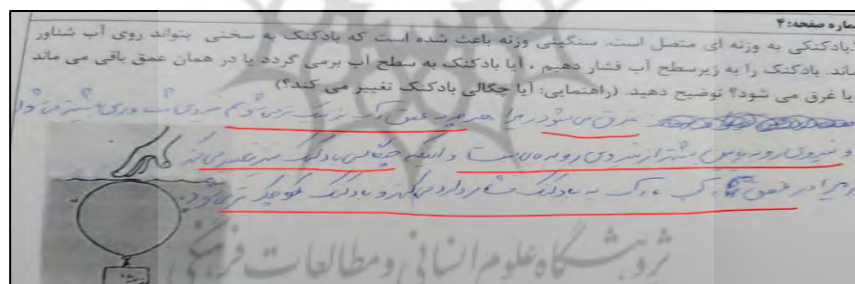 شماره صفحه:۴
بادکنکی به وزنه ای متصل است. سنگینی وزنه باعث شده است که بادکنک به سختی بتواند روی آب شناور
ماند. بادکنک را به زیرسطح آب فشار دهیم ، آیا بادکنک به سطح آب برمی گردد یا در همان عمق باقی می ماند
یا غرق می شود؟ توضیح دهید. (راهنمایی: آیا چگالی بادکنک تغییر می کند؟)
غرق می شود زیرا هر چه به عمق آب نزدیک تر می شویم نیروی شناوری بیشتر می شود
و نیروی رو به پایین بیشتر از نیروی رو به بالا است و اینکه چگالی بادکنک هم تغییر می کند
زیرا در عمق آب ، آب به بادکنک فشار وارد می کند و بادکنک کوچک تر می شود.
وزنه
پژوهشگاه علوم انسانی و مطالعات فرهنگی